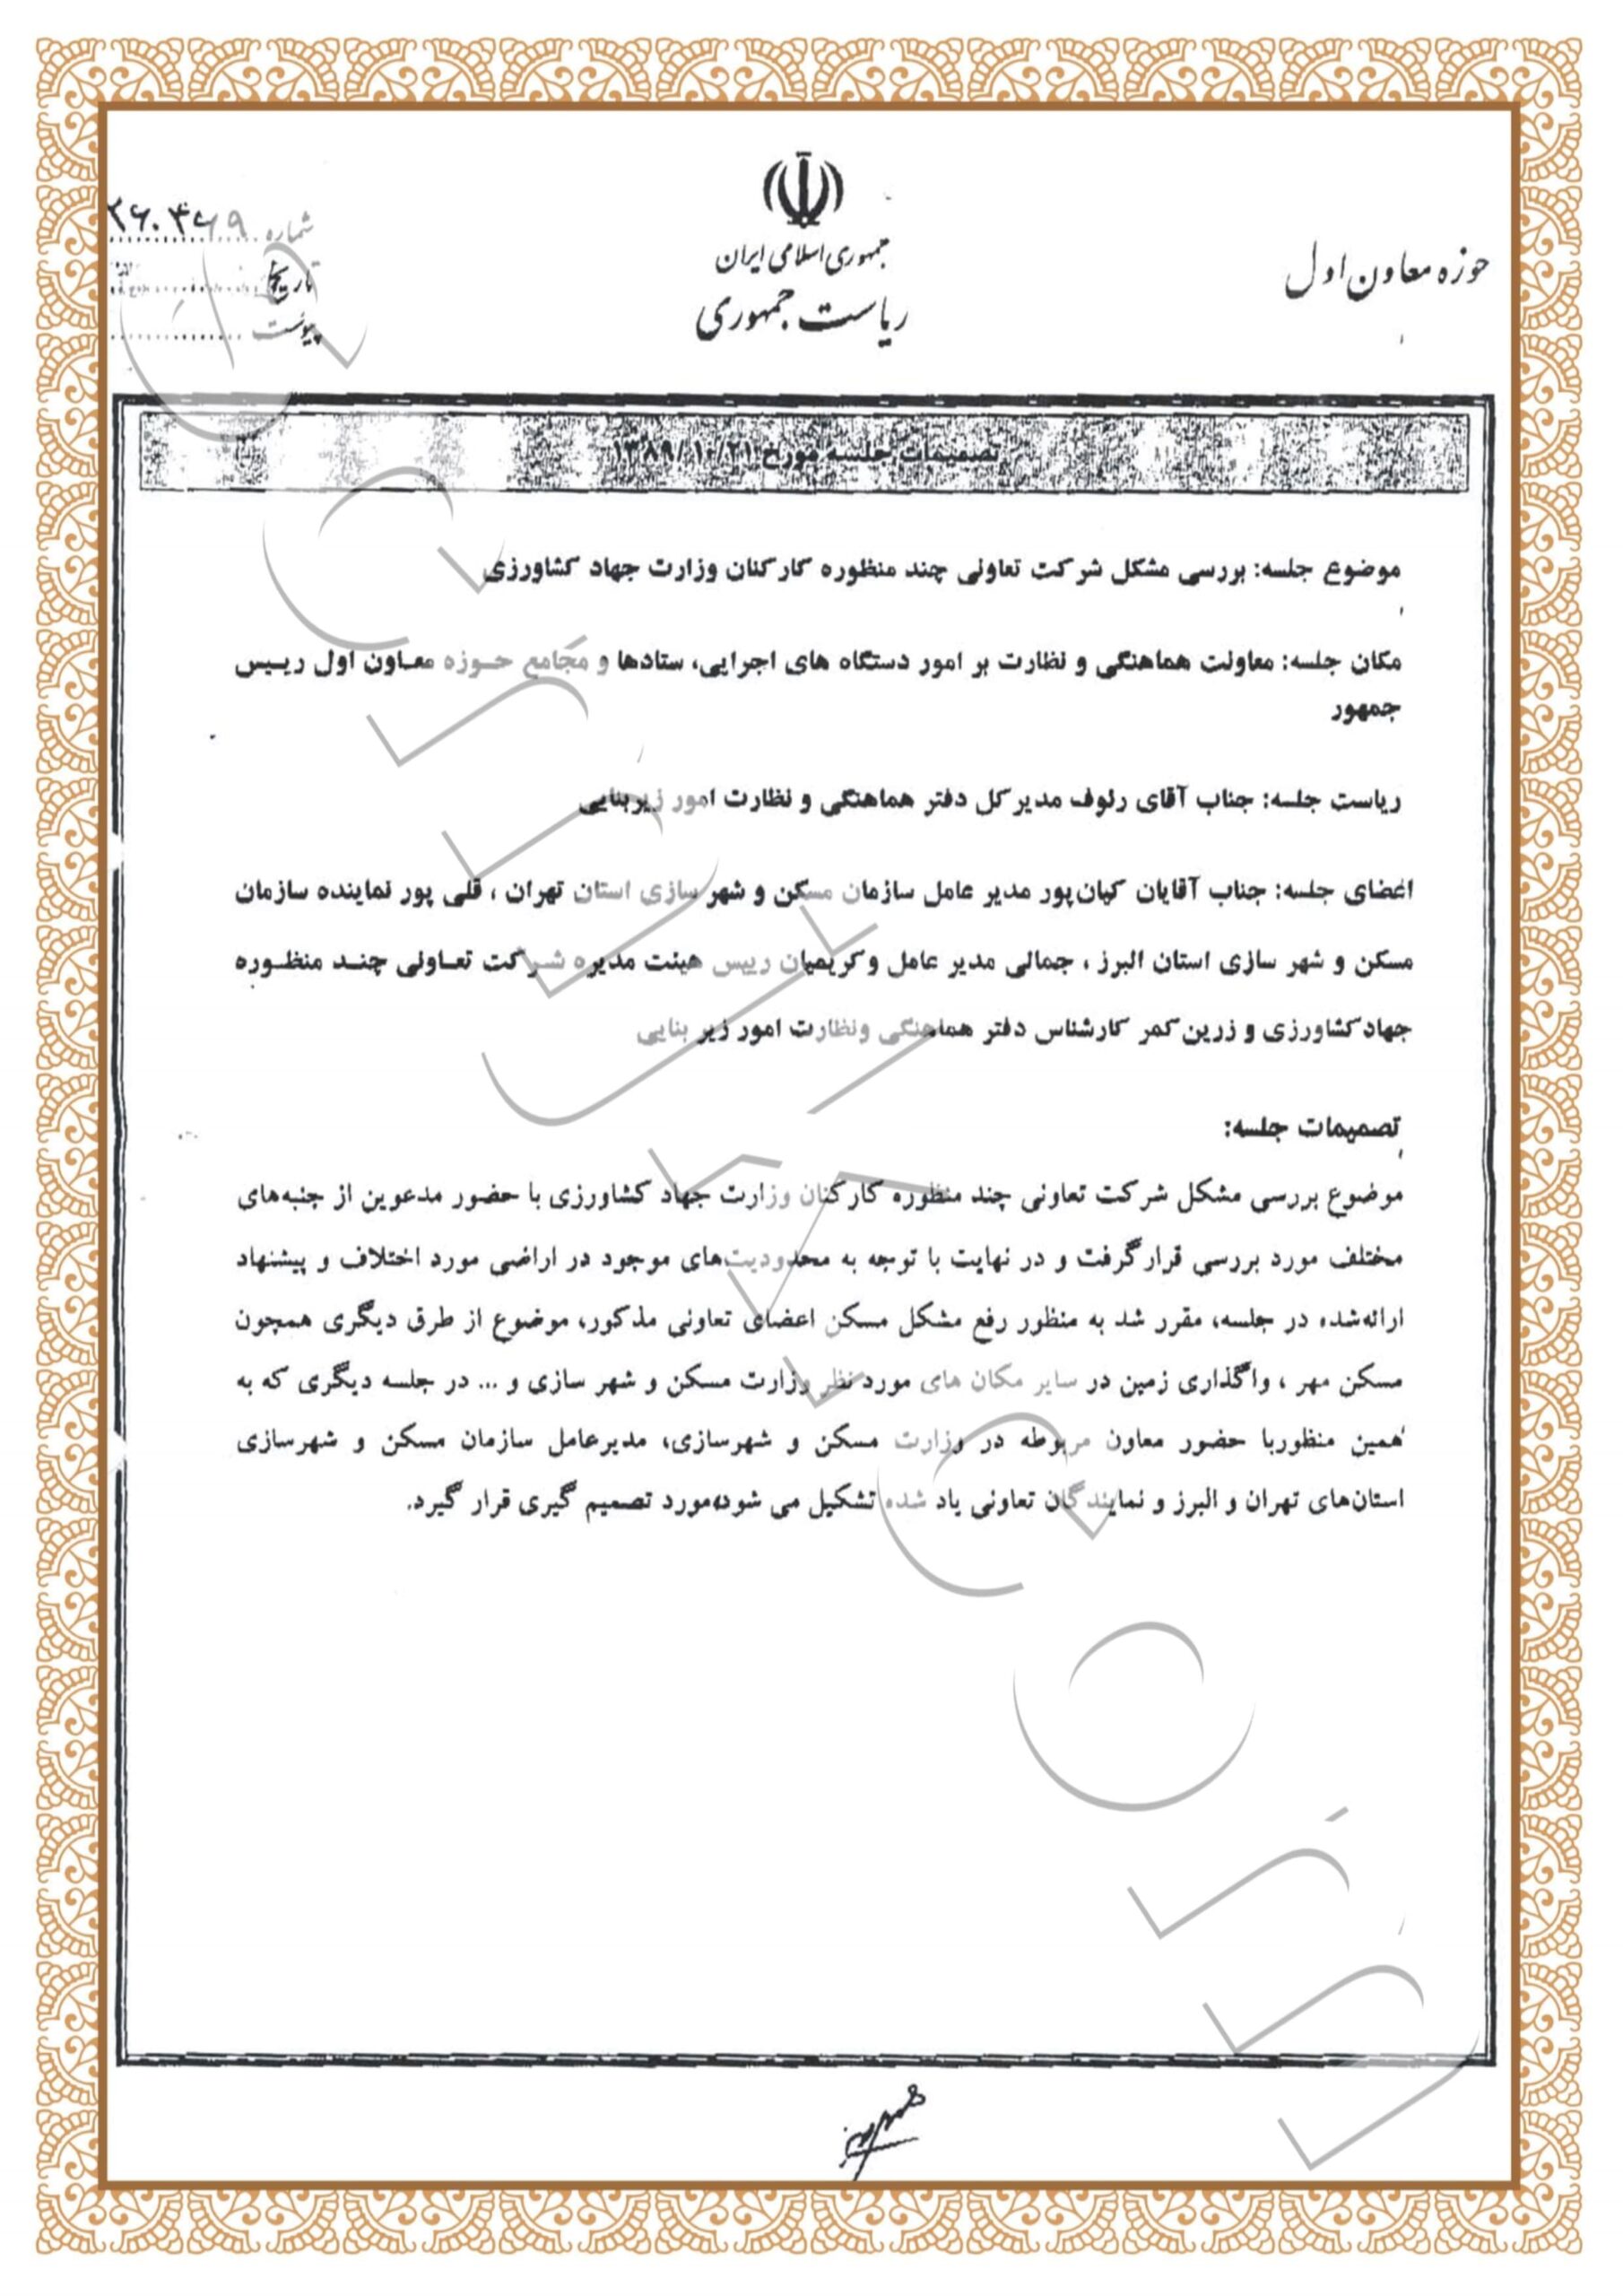 حوزه معاون اول
جمهوری اسلامی ایران
ریاست جمهوری
شماره
تاریخ
پیوست
تصمیمات جلسه مورخ ۱۳۸۹/۱۰/۲۱
موضوع جلسه: بررسی مشکل شرکت تعاونی چند منظوره کارکنان وزارت جهاد کشاورزی
مکان جلسه: معاونت هماهنگی و نظارت بر امور دستگاه های اجرایی، ستادها و مجامع حوزه معاون اول رییس
جمهور
ریاست جلسه: جناب آقای رئوف مدیر کل دفتر هماهنگی و نظارت امور زیربنایی
اعضای جلسه: جناب آقایان کیان‌پور مدیر عامل سازمان مسکن و شهر سازی استان تهران ، قلی پور نماینده سازمان
مسکن و شهر سازی استان البرز ، جمالی مدیر عامل و کریمیان رییس هیئت مدیره شرکت تعاونی چند منظوره
جهاد کشاورزی و زرین کمر کارشناس دفتر هماهنگی ونظارت امور زیر بنایی
تصمیمات جلسه:
موضوع بررسی مشکل شرکت تعاونی چند منظوره کارکنان وزارت جهاد کشاورزی با حضور مدعوین از جنبه‌های
مختلف مورد بررسی قرار گرفت و در نهایت با توجه به محدودیت‌های موجود در اراضی مورد اختلاف و پیشنهاد
ارائه‌شده در جلسه، مقرر شد به منظور رفع مشکل مسکن اعضای تعاونی مذکور، موضوع از طرق دیگری همچون
مسکن مهر ، واگذاری زمین در سایر مکان های مورد نظر وزارت مسکن و شهر سازی و ... در جلسه دیگری که به
همین منظوربا حضور معاون مربوطه در وزارت مسکن و شهرسازی، مدیرعامل سازمان مسکن و شهرسازی
استان‌های تهران و البرز و نمایندگان تعاونی یاد شده تشکیل می شود،مورد تصمیم گیری قرار گیرد.